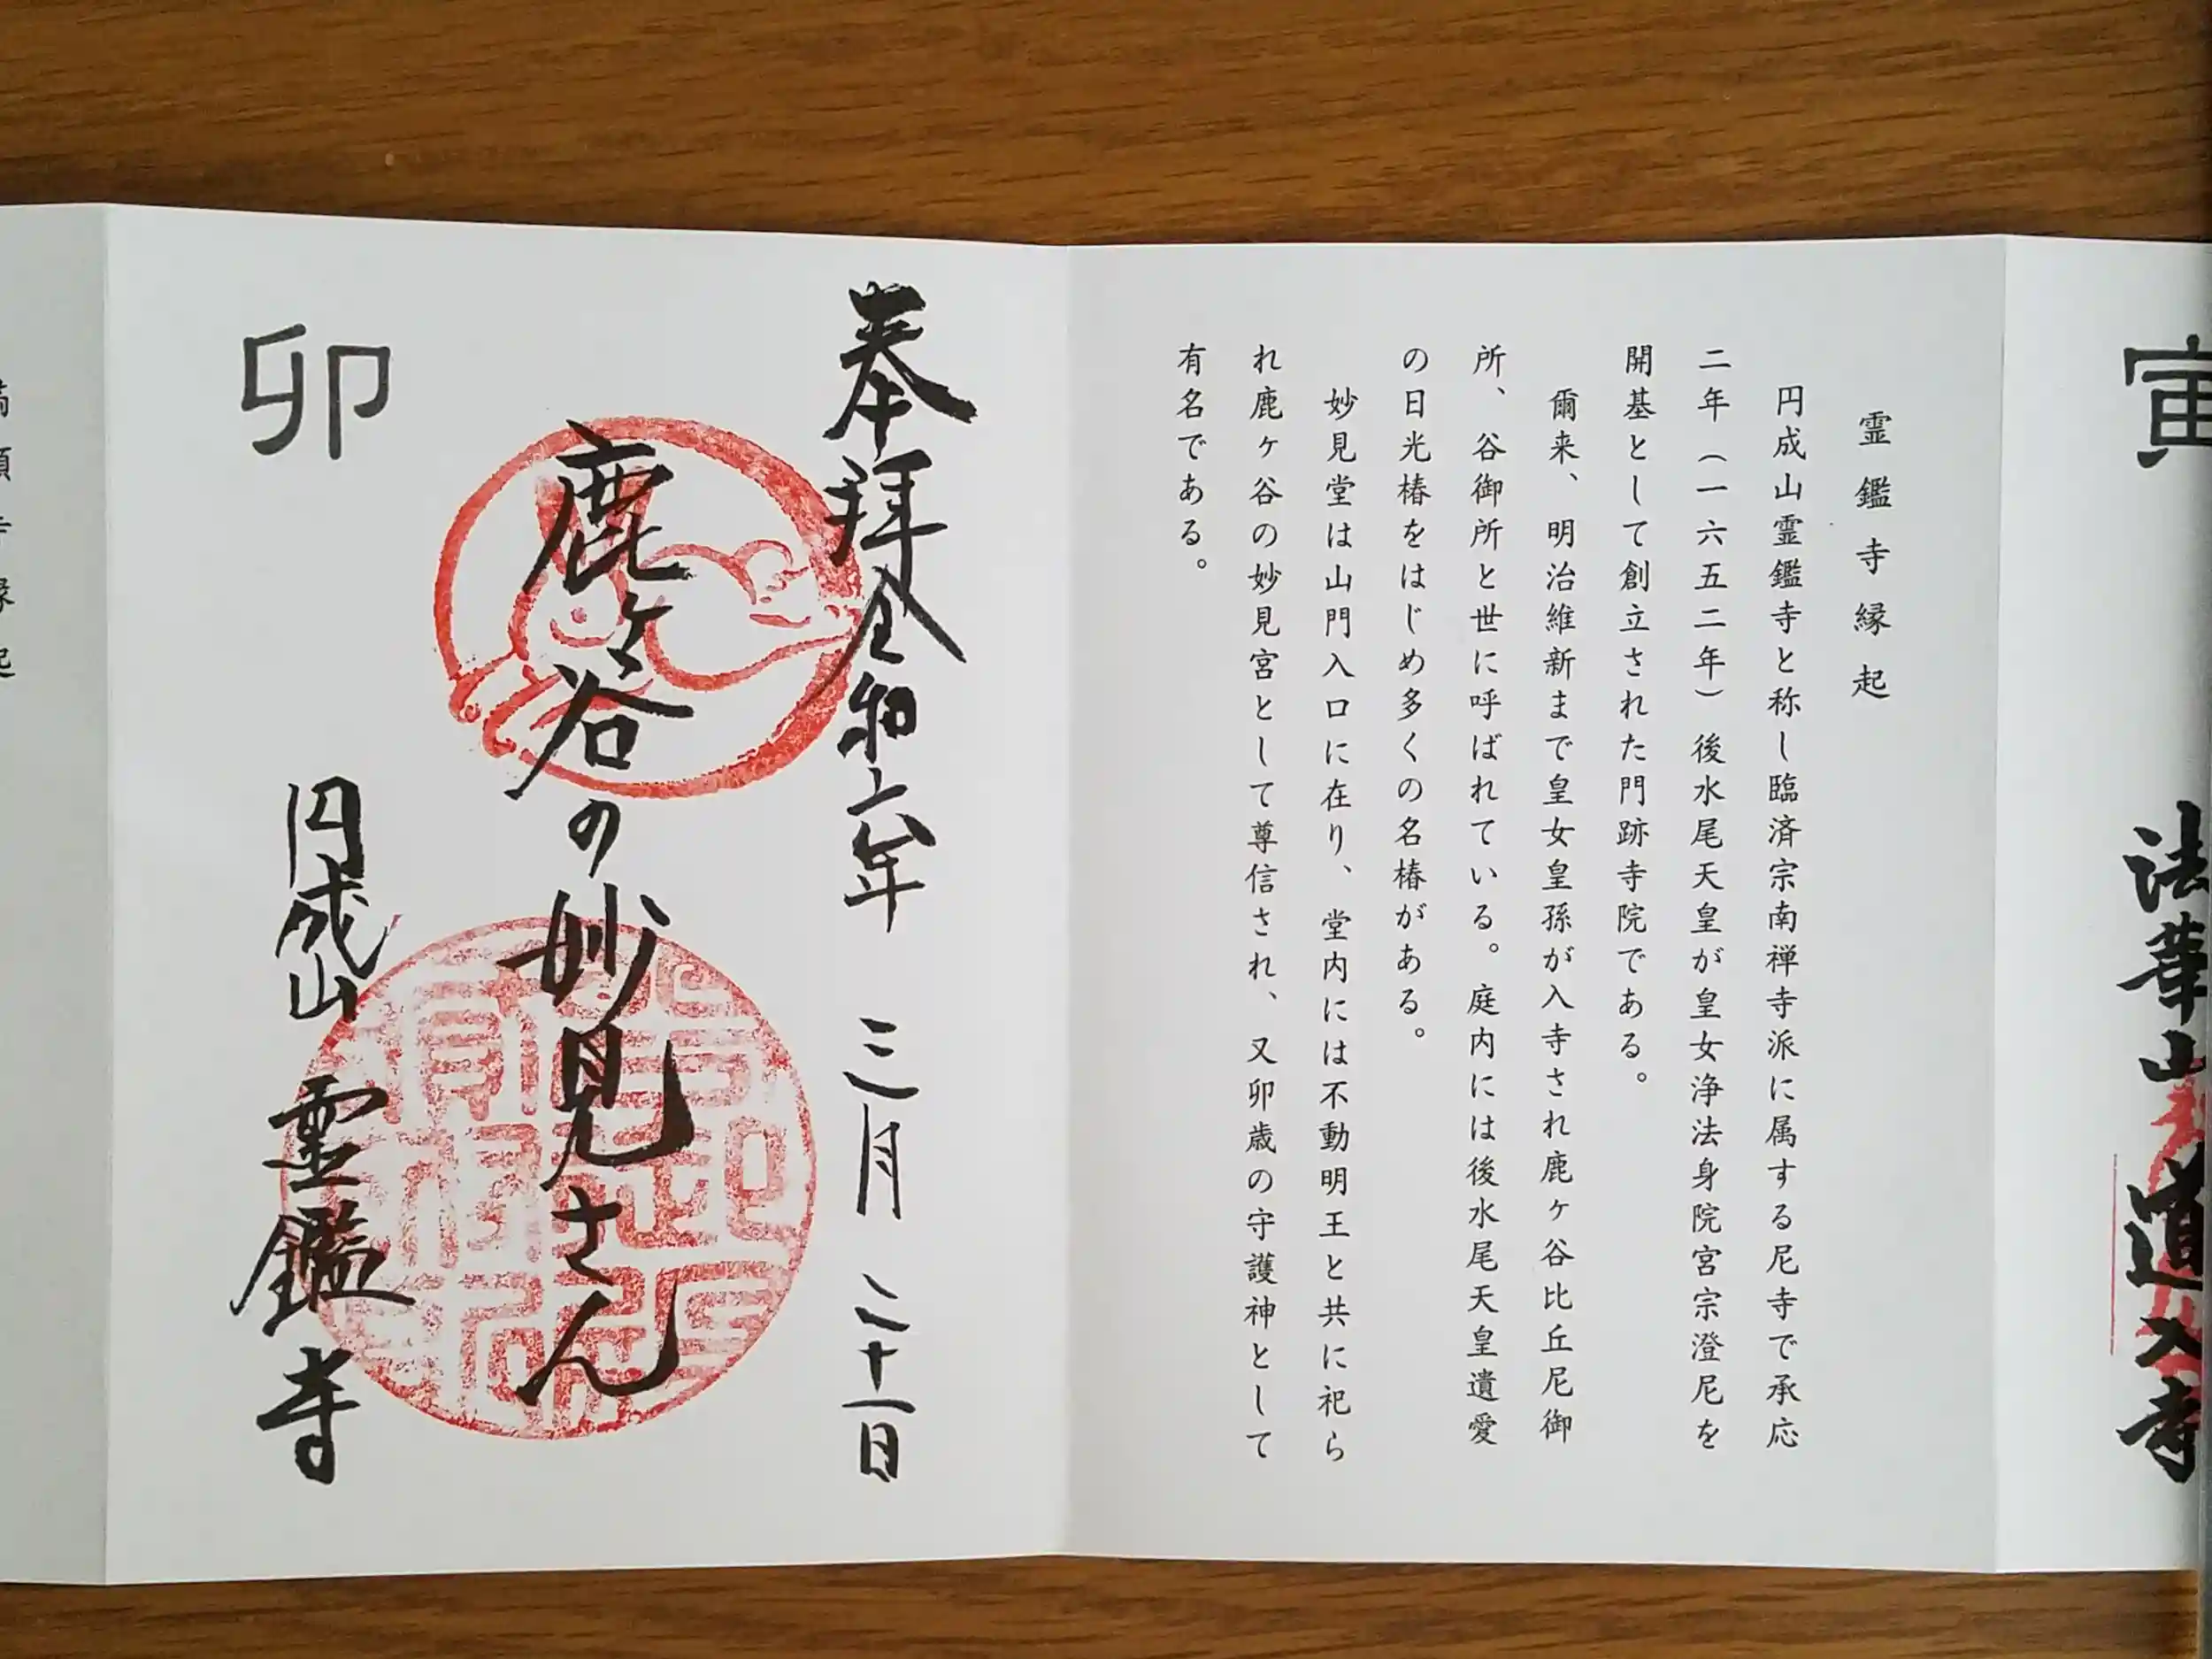 寅
法華山
道入寺
霊鑑寺縁起
円成山霊鑑寺と称し臨済宗南禅寺派に属する尼寺で承応
二年（一六五二年）後水尾天皇が皇女浄法身院宮宗澄尼を
開基として創立された門跡寺院である。
爾来、明治維新まで皇女皇孫が入寺され鹿ヶ谷比丘尼御
所、谷御所と世に呼ばれている。庭内には後水尾天皇遺愛
の日光椿をはじめ多くの名椿がある。
妙見堂は山門入口に在り、堂内には不動明王と共に祀ら
れ鹿ヶ谷の妙見宮として尊信され、又卯歳の守護神として
有名である。
奉拝令和六年 三月 二十一日
鹿ヶ谷の妙見さん
卯
円成山 霊鑑寺